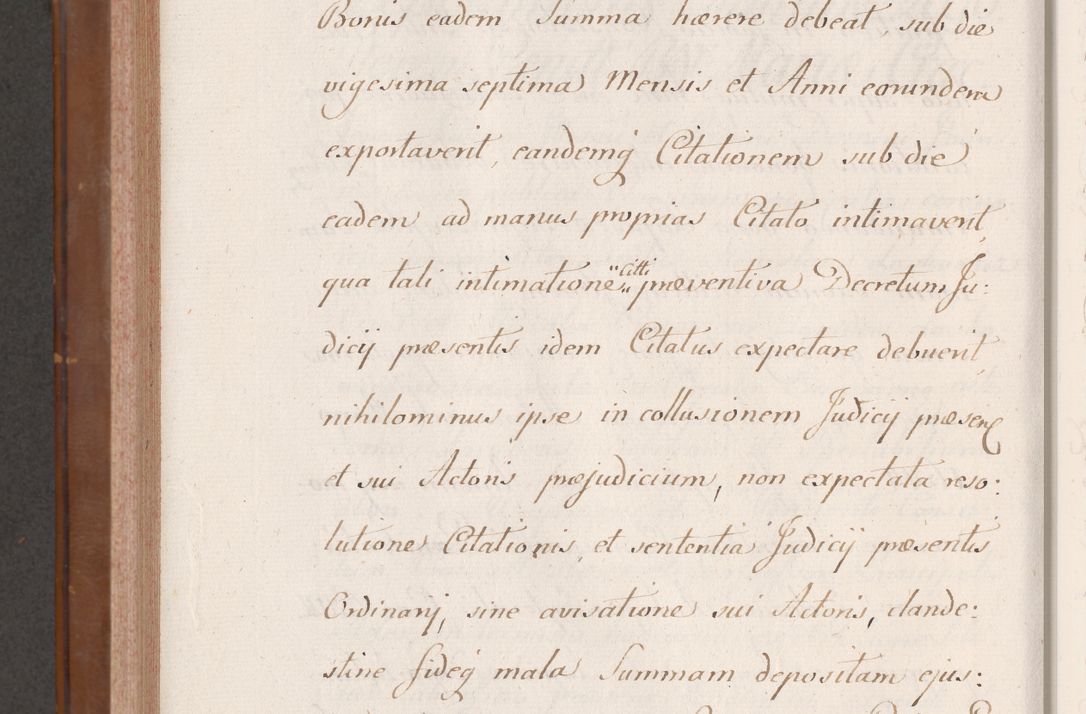 Bonis eadem Summa hærere debeat, sub die
vigesima septima Mensis et Anni eorundem
exportaverit, eandemq́ Citationem sub die
eadem ad manus proprias Citato intimaverit,
qua tali intimatione "Citti" præventiva Decretum Ju:
dicij præsentis idem Citatus expectare debuerit,
nihilominus ipse in collusionem Judicij præsen
et sui Actoris præjudicium, non expectata reso:
lutione Citationis, et sententia Judicij præsentis
Ordinarij, sine avisatione sui Actoris, clande:
stine fideq́ mala Summam depositam ejus: